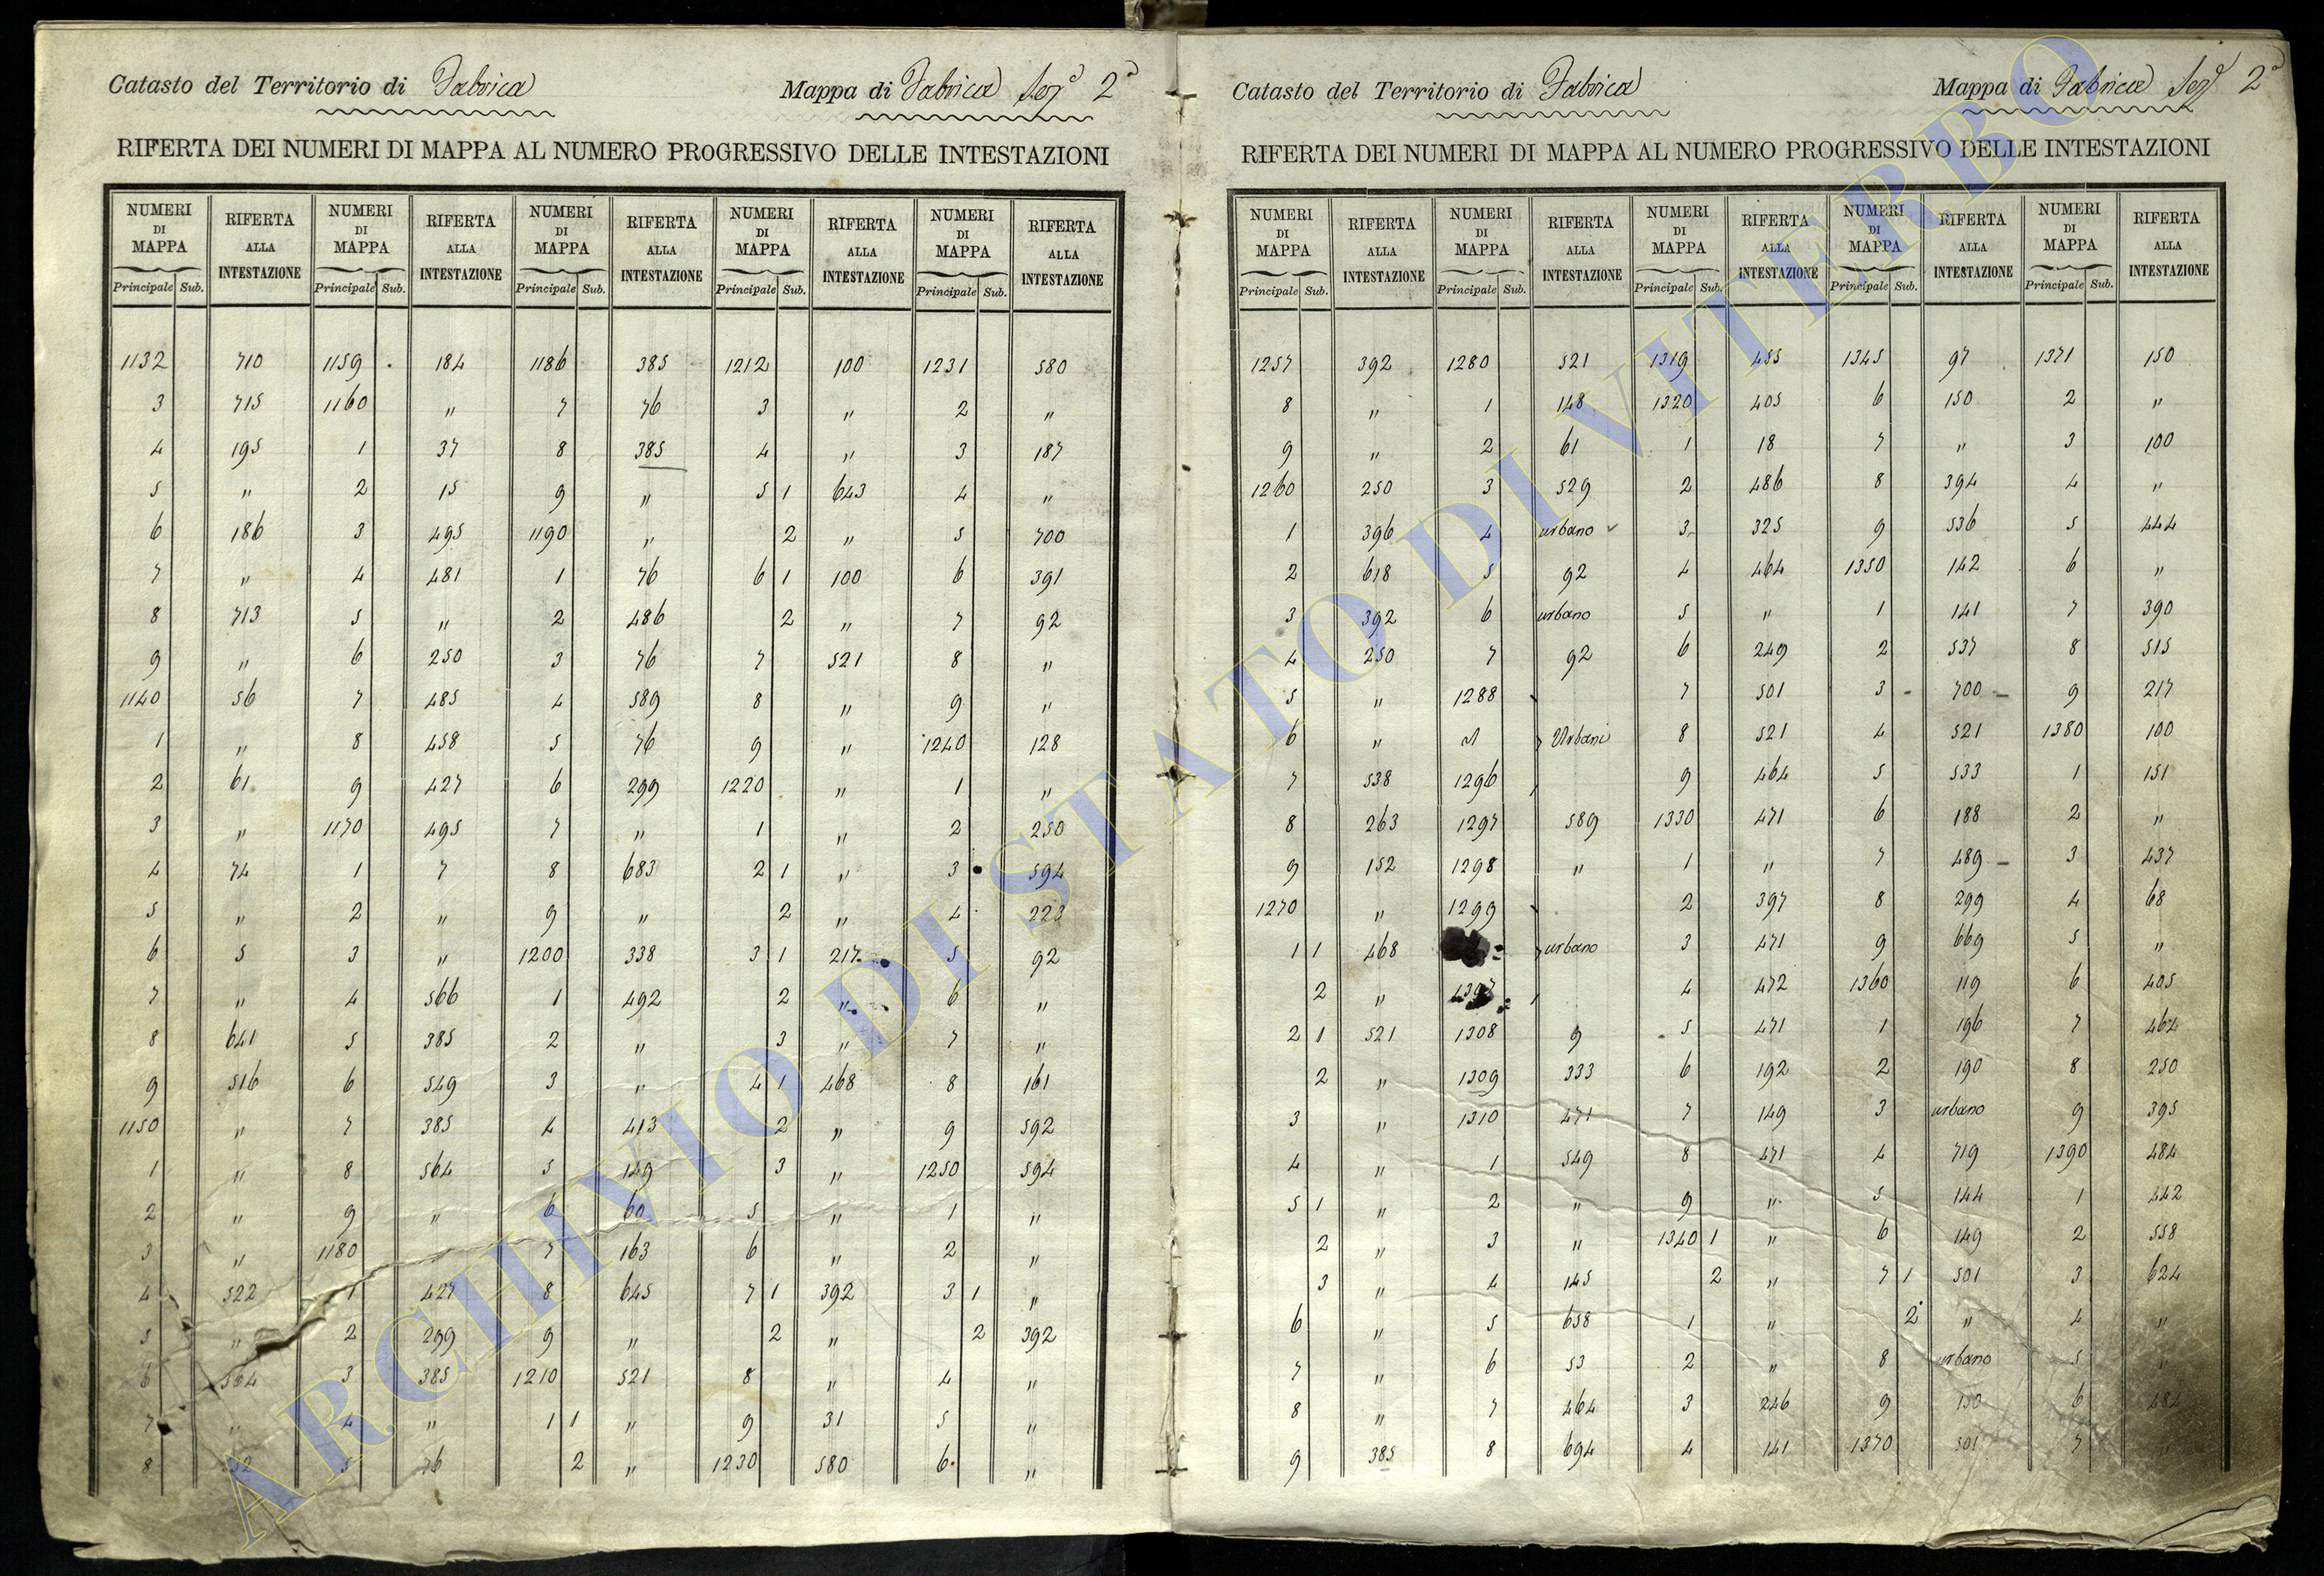 Catasto del Territorio di Fabrica Mappa di Fabrica Sez. 2ª
RIFERTA DEI NUMERI DI MAPPA AL NUMERO PROGRESSIVO DELLE INTESTAZIONI
NUMERI DI MAPPA RIFERTA ALLA INTESTAZIONE NUMERI DI MAPPA RIFERTA ALLA INTESTAZIONE NUMERI DI MAPPA RIFERTA ALLA INTESTAZIONE NUMERI DI MAPPA RIFERTA ALLA INTESTAZIONE NUMERI DI MAPPA RIFERTA ALLA INTESTAZIONE
Principale Sub. Principale Sub. Principale Sub. Principale Sub. Principale Sub.
1132 710 1159 184 1186 385 1212 100 1231 580
3 715 1160 " 7 76 3 " 2 "
4 195 1 37 8 385 4 " 3 187
5 " 2 15 9 " 5 1 643 4 "
6 186 3 495 1190 " 2 " 5 700
7 " 4 481 1 76 6 1 100 6 391
8 713 5 " 2 486 2 " 7 92
9 " 6 250 3 76 7 521 8 "
1140 56 7 485 4 589 8 " 9 "
1 " 8 458 5 76 9 " 1240 128
2 61 9 427 6 299 1220 " 1 "
3 " 1170 495 7 " 1 " 2 250
4 74 1 7 8 683 2 1 " 3 594
5 " 2 " 9 " 2 " 4 223
6 5 3 " 1200 338 3 1 217 5 92
7 " 4 566 1 492 2 " 6 "
8 641 5 385 2 " 3 " 7 "
9 516 6 549 3 " 4 1 468 8 161
1150 " 7 385 4 413 2 " 9 592
1 " 8 564 5 149 3 " 1250 594
2 " 9 " 6 60 5 " 1 "
3 " 1180 7 163 6 " 2 "
4 522 1 427 8 645 7 1 392 3 1 "
5 " 2 299 9 " 2 " 2 392
6 564 3 385 1210 521 8 " 4 "
7 " 4 " 1 1 " 9 31 5 "
8 5 76 2 " 1230 580 6 "
Catasto del Territorio di Fabrica Mappa di Fabrica Sez. 2ª
RIFERTA DEI NUMERI DI MAPPA AL NUMERO PROGRESSIVO DELLE INTESTAZIONI
NUMERI DI MAPPA RIFERTA ALLA INTESTAZIONE NUMERI DI MAPPA RIFERTA ALLA INTESTAZIONE NUMERI DI MAPPA RIFERTA ALLA INTESTAZIONE NUMERI DI MAPPA RIFERTA ALLA INTESTAZIONE NUMERI DI MAPPA RIFERTA ALLA INTESTAZIONE
Principale Sub. Principale Sub. Principale Sub. Principale Sub. Principale Sub.
1257 392 1280 521 1319 455 1345 97 1371 150
8 " 1 148 1320 405 6 150 2 "
9 " 2 61 1 18 7 " 3 100
1260 250 3 529 2 486 8 394 4 "
1 396 4 urbano 3 325 9 536 5 444
2 618 5 92 4 464 1350 142 6 "
3 392 6 urbano 5 " 1 141 7 390
4 250 7 92 6 249 2 537 8 515
5 " 1288 7 501 3 700 9 217
6 " al Urbani 8 521 4 521 1380 100
7 538 1296 9 464 5 533 1 151
8 263 1297 589 1330 471 6 188 2 "
9 152 1298 " 1 " 7 489 3 437
1270 " 1299 2 397 8 299 4 68
1 1 468 urbano 3 471 9 669 5 "
2 " 1307 4 472 1360 119 6 405
2 1 521 1308 9 5 471 1 196 7 464
2 " 1309 333 6 192 2 190 8 250
3 " 1310 471 7 149 3 urbano 9 395
4 " 1 549 8 471 4 719 1390 484
5 1 " 2 " 9 " 5 144 1 442
2 " 3 " 1340 1 " 6 149 2 558
3 " 4 145 2 " 7 1 501 3 624
6 " 5 658 1 " 2 " 4 "
7 " 6 53 2 " 8 urbano 5 "
8 " 7 464 3 246 9 150 6 484
9 385 8 694 4 141 1370 501 7 "
ARCHIVIO DI STATO DI VITERBO